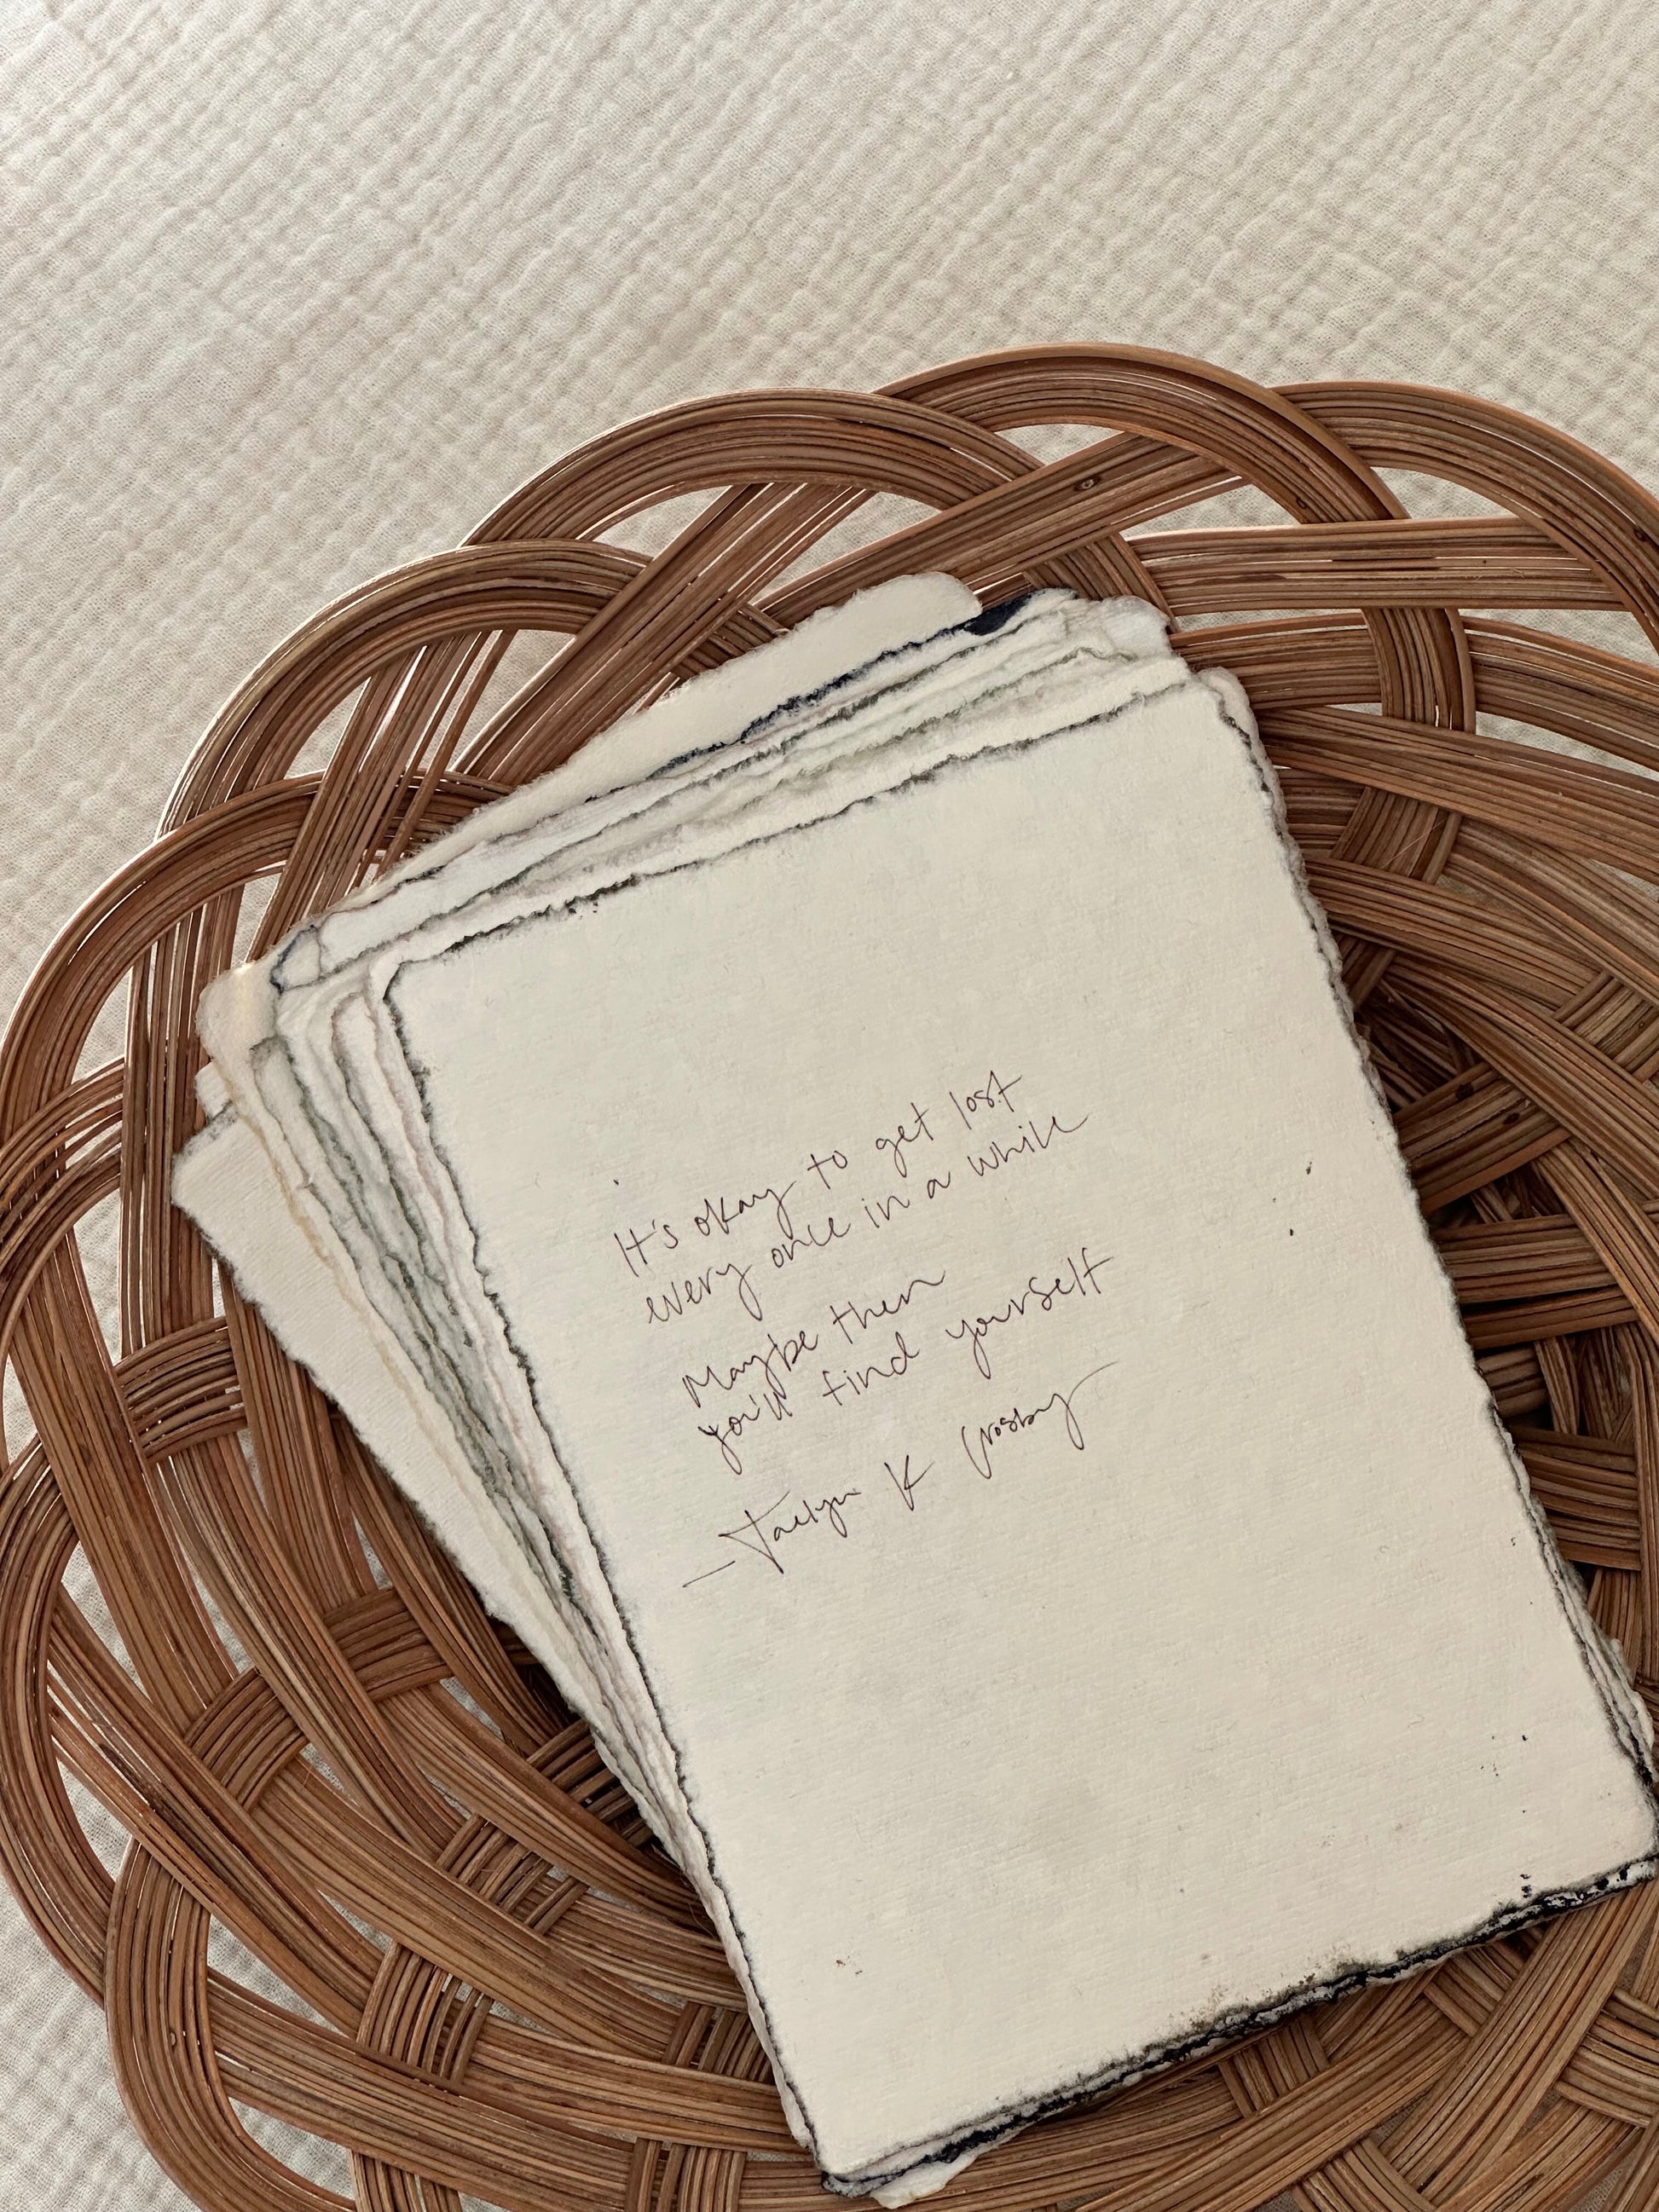 It's okay to get lost
every once in a while
Maybe then
you'll find yourself
—Jaelyn K Crosby